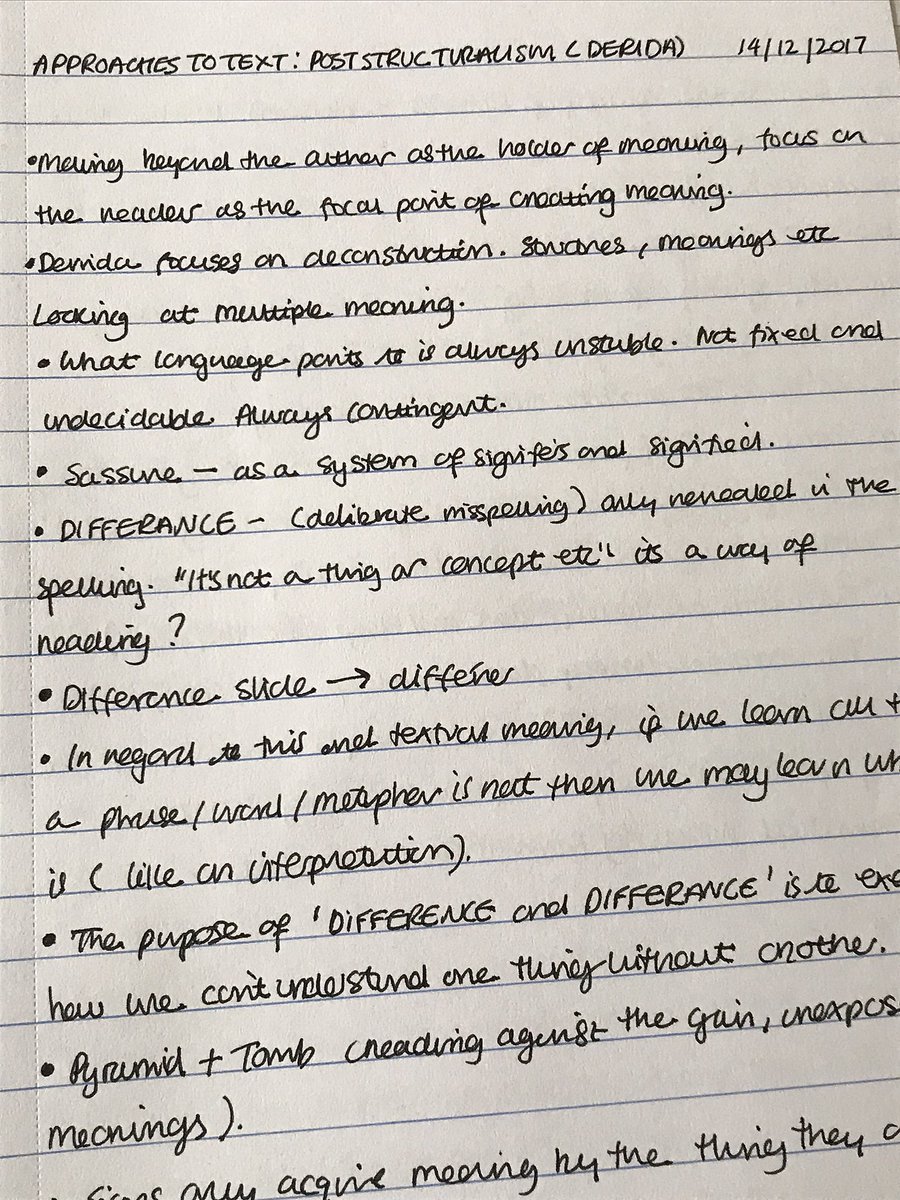 APPROACHES TO TEXT: POSTSTRUCTURALISM (DERIDA) 14/12/2017
•Moving beyond the author as the holder of meaning, focus on
the reader as the focal point of creating meaning.
•Derrida focuses on deconstruction. Structures, meanings etc
Looking at multiple meaning.
• What language points to is always unstable. Not fixed and
undecidable. Always contingent.
• Sassure – as a system of signifers and signified.
• DIFFERANCE – (deliberate misspelling) only revealed in the
spelling. "It's not a thing or concept etc" its a way of
reading?
• Difference slide → differer
• In regard to this and textual meaning, if we learn all
a phrase/word/metaphor is not then we may learn
is (like an interpretation).
• The pupose of 'DIFFERENCE and DIFFERANCE' is to
how we can't understand one thing without another.
• Pyramid + Tomb (reading against the gain,
meanings).
• Signs only acquire meaning by the thing they